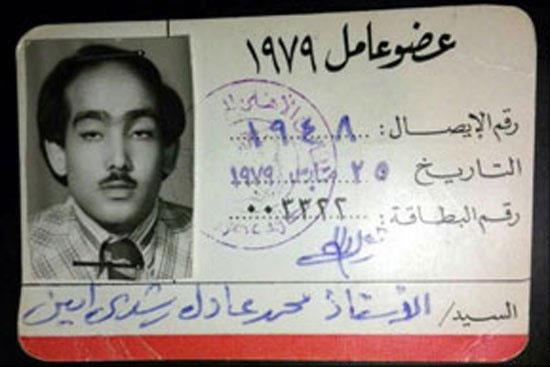 عضو عامل ١٩٧٩
رقم الإيصال: ١٩٤٨
التاريخ ٢٥ مارس ١٩٧٩
رقم البطاقة: ٠٠٣٣٢٢
السيد/ الأستاذ محمد عادل رشدى أمين